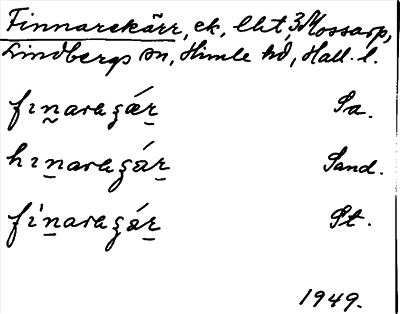 Finnarekärr, ek, lht 3 Mossarp,
Lindbergs sn, Himle hd, Hall. l.
fɩn̰araʒǽr̲ Sa.
hɩn̲araʒár̲ Sand.
fín̲araʒár̲ St.
1949.